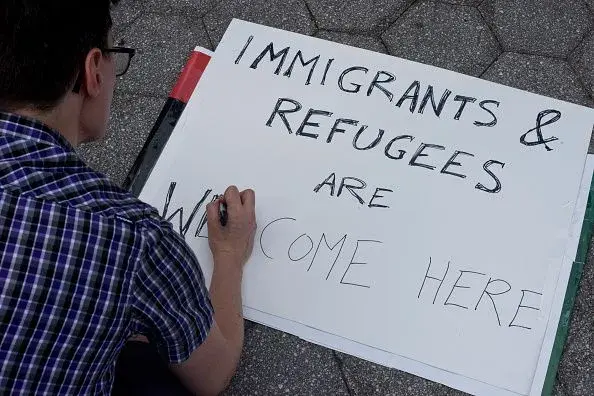 IMMIGRANTS &
REFUGEES
ARE
WELCOME HERE